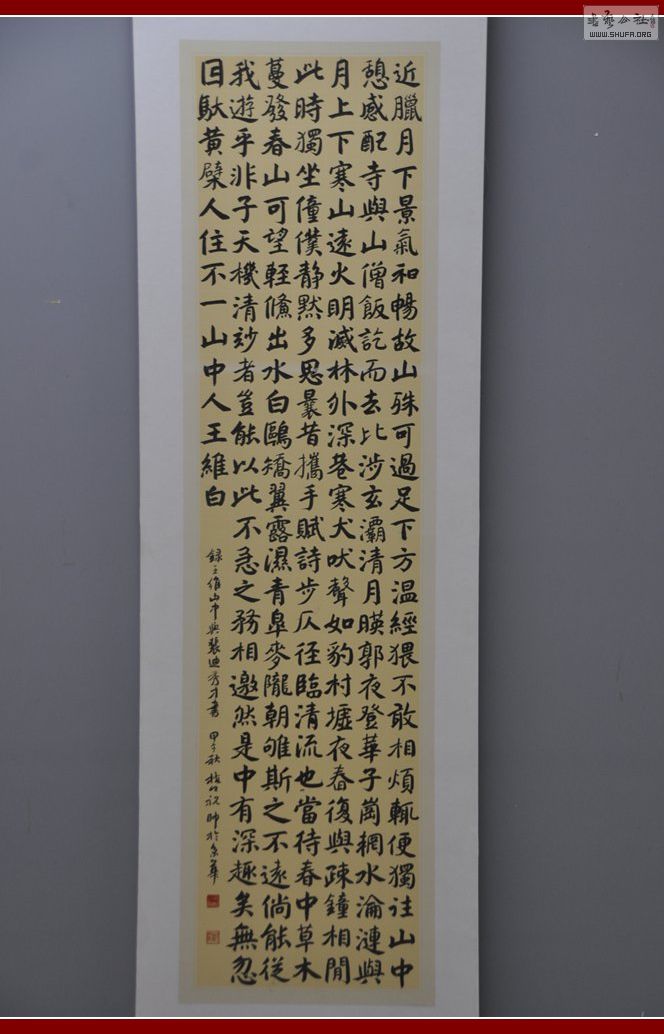 近臘月下景氣和暢故山殊可過足下方溫經猥不敢相煩輒便獨往山中
憩感配寺與山僧飯訖而去比涉玄灞清月暎郭夜登華子崗輞水淪漣與
月上下寒山遠火明滅林外深巷寒犬吠聲如豹村墟夜舂復與疎鐘相閒
此時獨坐僮僕靜默多思曩昔攜手賦詩步仄徑臨清流也當待春中草木
蔓發春山可望輕鯈出水白鷗矯翼露濕青皋麥隴朝雊斯之不遠倘能從
我遊乎非子天機清妙者豈能以此不急之務相邀然是中有深趣矣無忽
因馱黃檗人往不一山中人王維白
錄王維山中與裴迪秀才書 秋 祝帥於京華
書藝公社
WWW.SHUFA.ORG